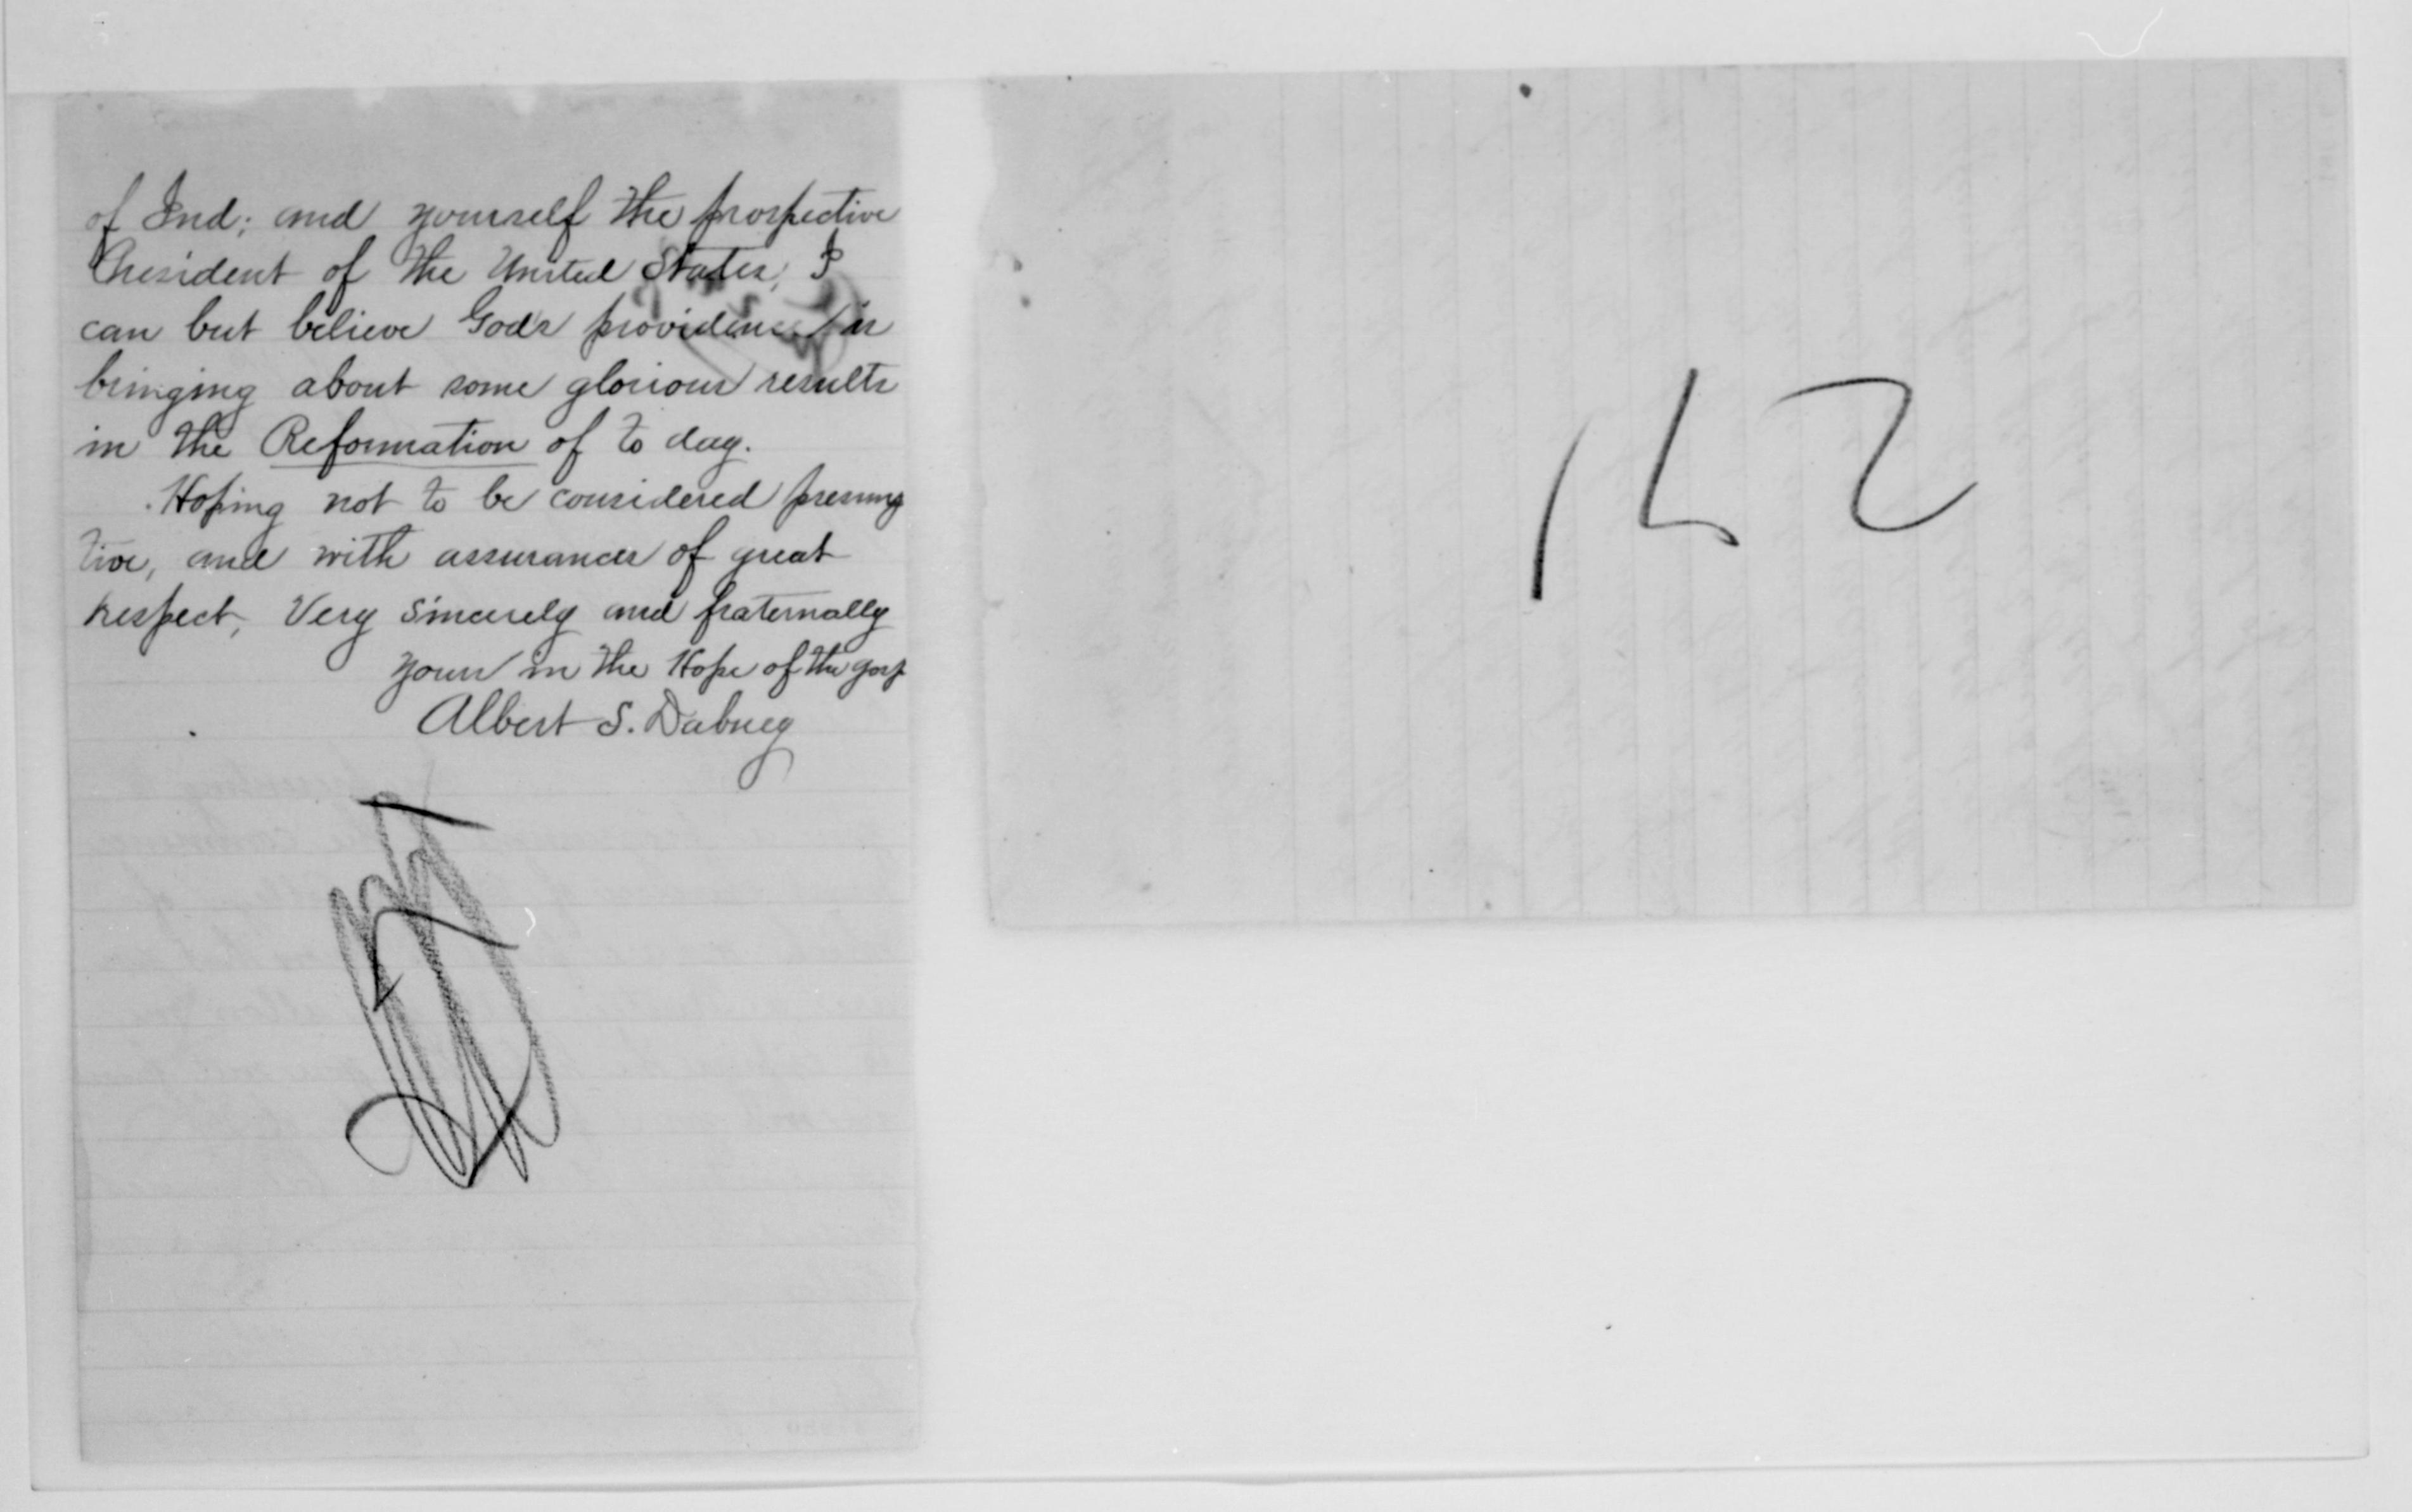 of Ind; and yourself the prospective
President of the United States; I
can but believe God's providence is
bringing about some glorious results
in the Reformation of to day.
Hoping not to be considered presump
tive, and with assurances of great
respect, Very Sincerely and fraternally
yours in the Hope of the gosp
Albert S. Dabney